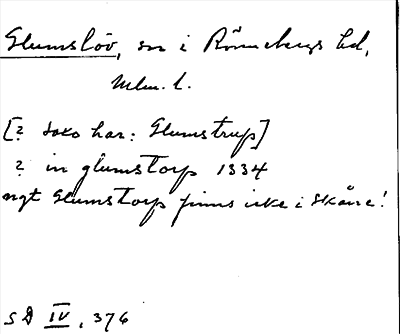 Glumslöv, sn i Rönnebergs hd,
Mlm. l.
[? Loko har: Glumstrup]
? in glumstorp 1334
ngt Glumstorp finns icke i Skåne!
SD IV, 376